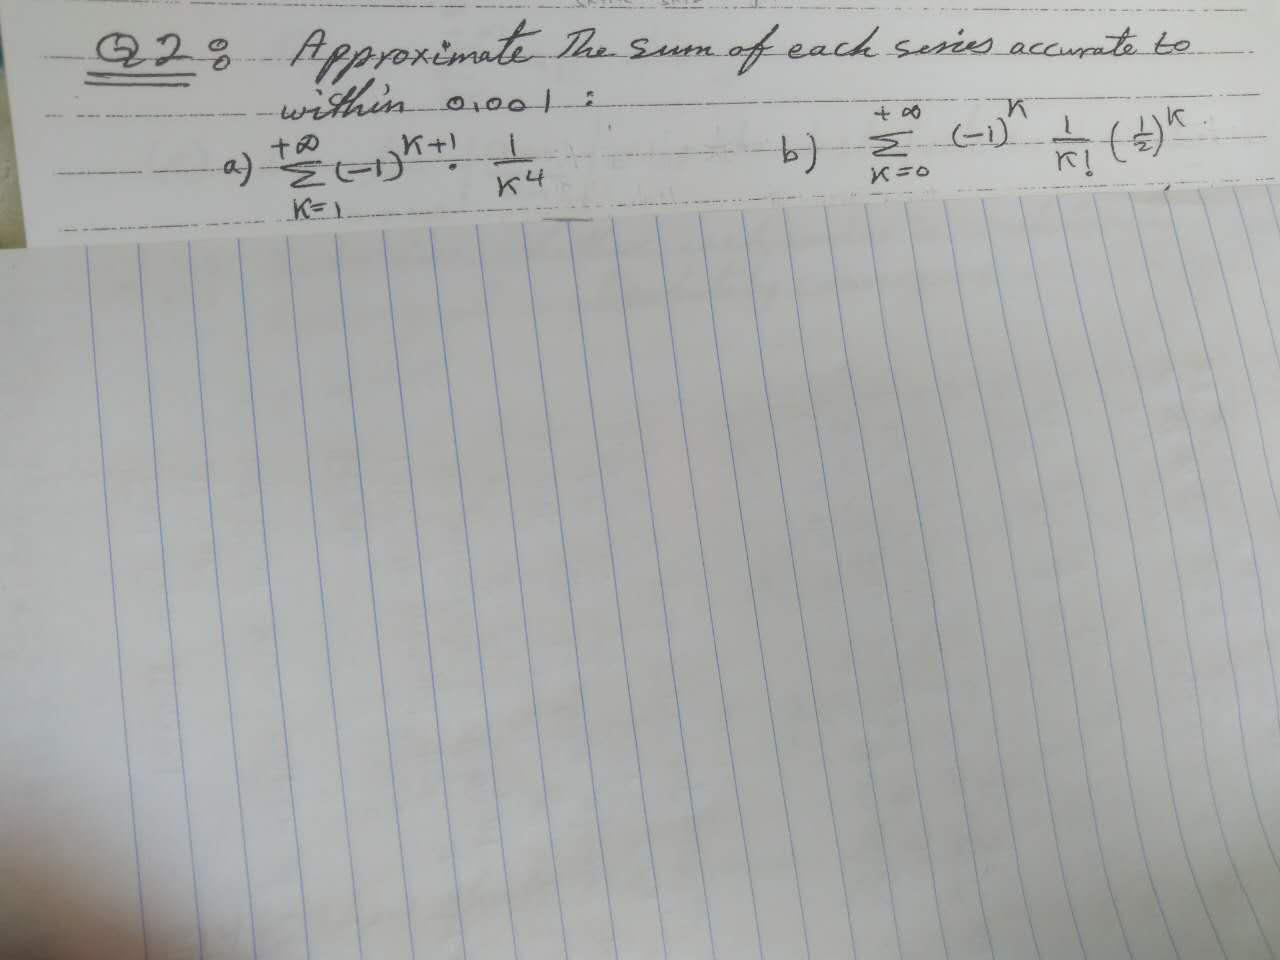 Q2: Approximate The sum of each series accurate to
within 0.001 :
a) +∞ Σ K=1 (-1)^K+1 . 1/K^4 b) +∞ Σ K=0 (-1)^K 1/K! (1/2)^K